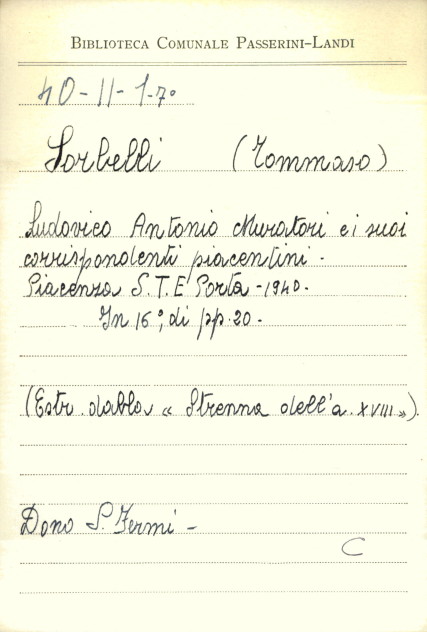 BIBLIOTECA COMUNALE PASSERINI-LANDI
40-II-1-7º
Sorbelli (Tommaso)
Ludovico Antonio Muratori e i suoi
corrispondenti piacentini -
Piacenza S.T.E Porta - 1940 -
In 16º, di pp. 20 -
(Estr. dalla « Strenna dell'a. XVIII »).
Dono S. Fermi -
C